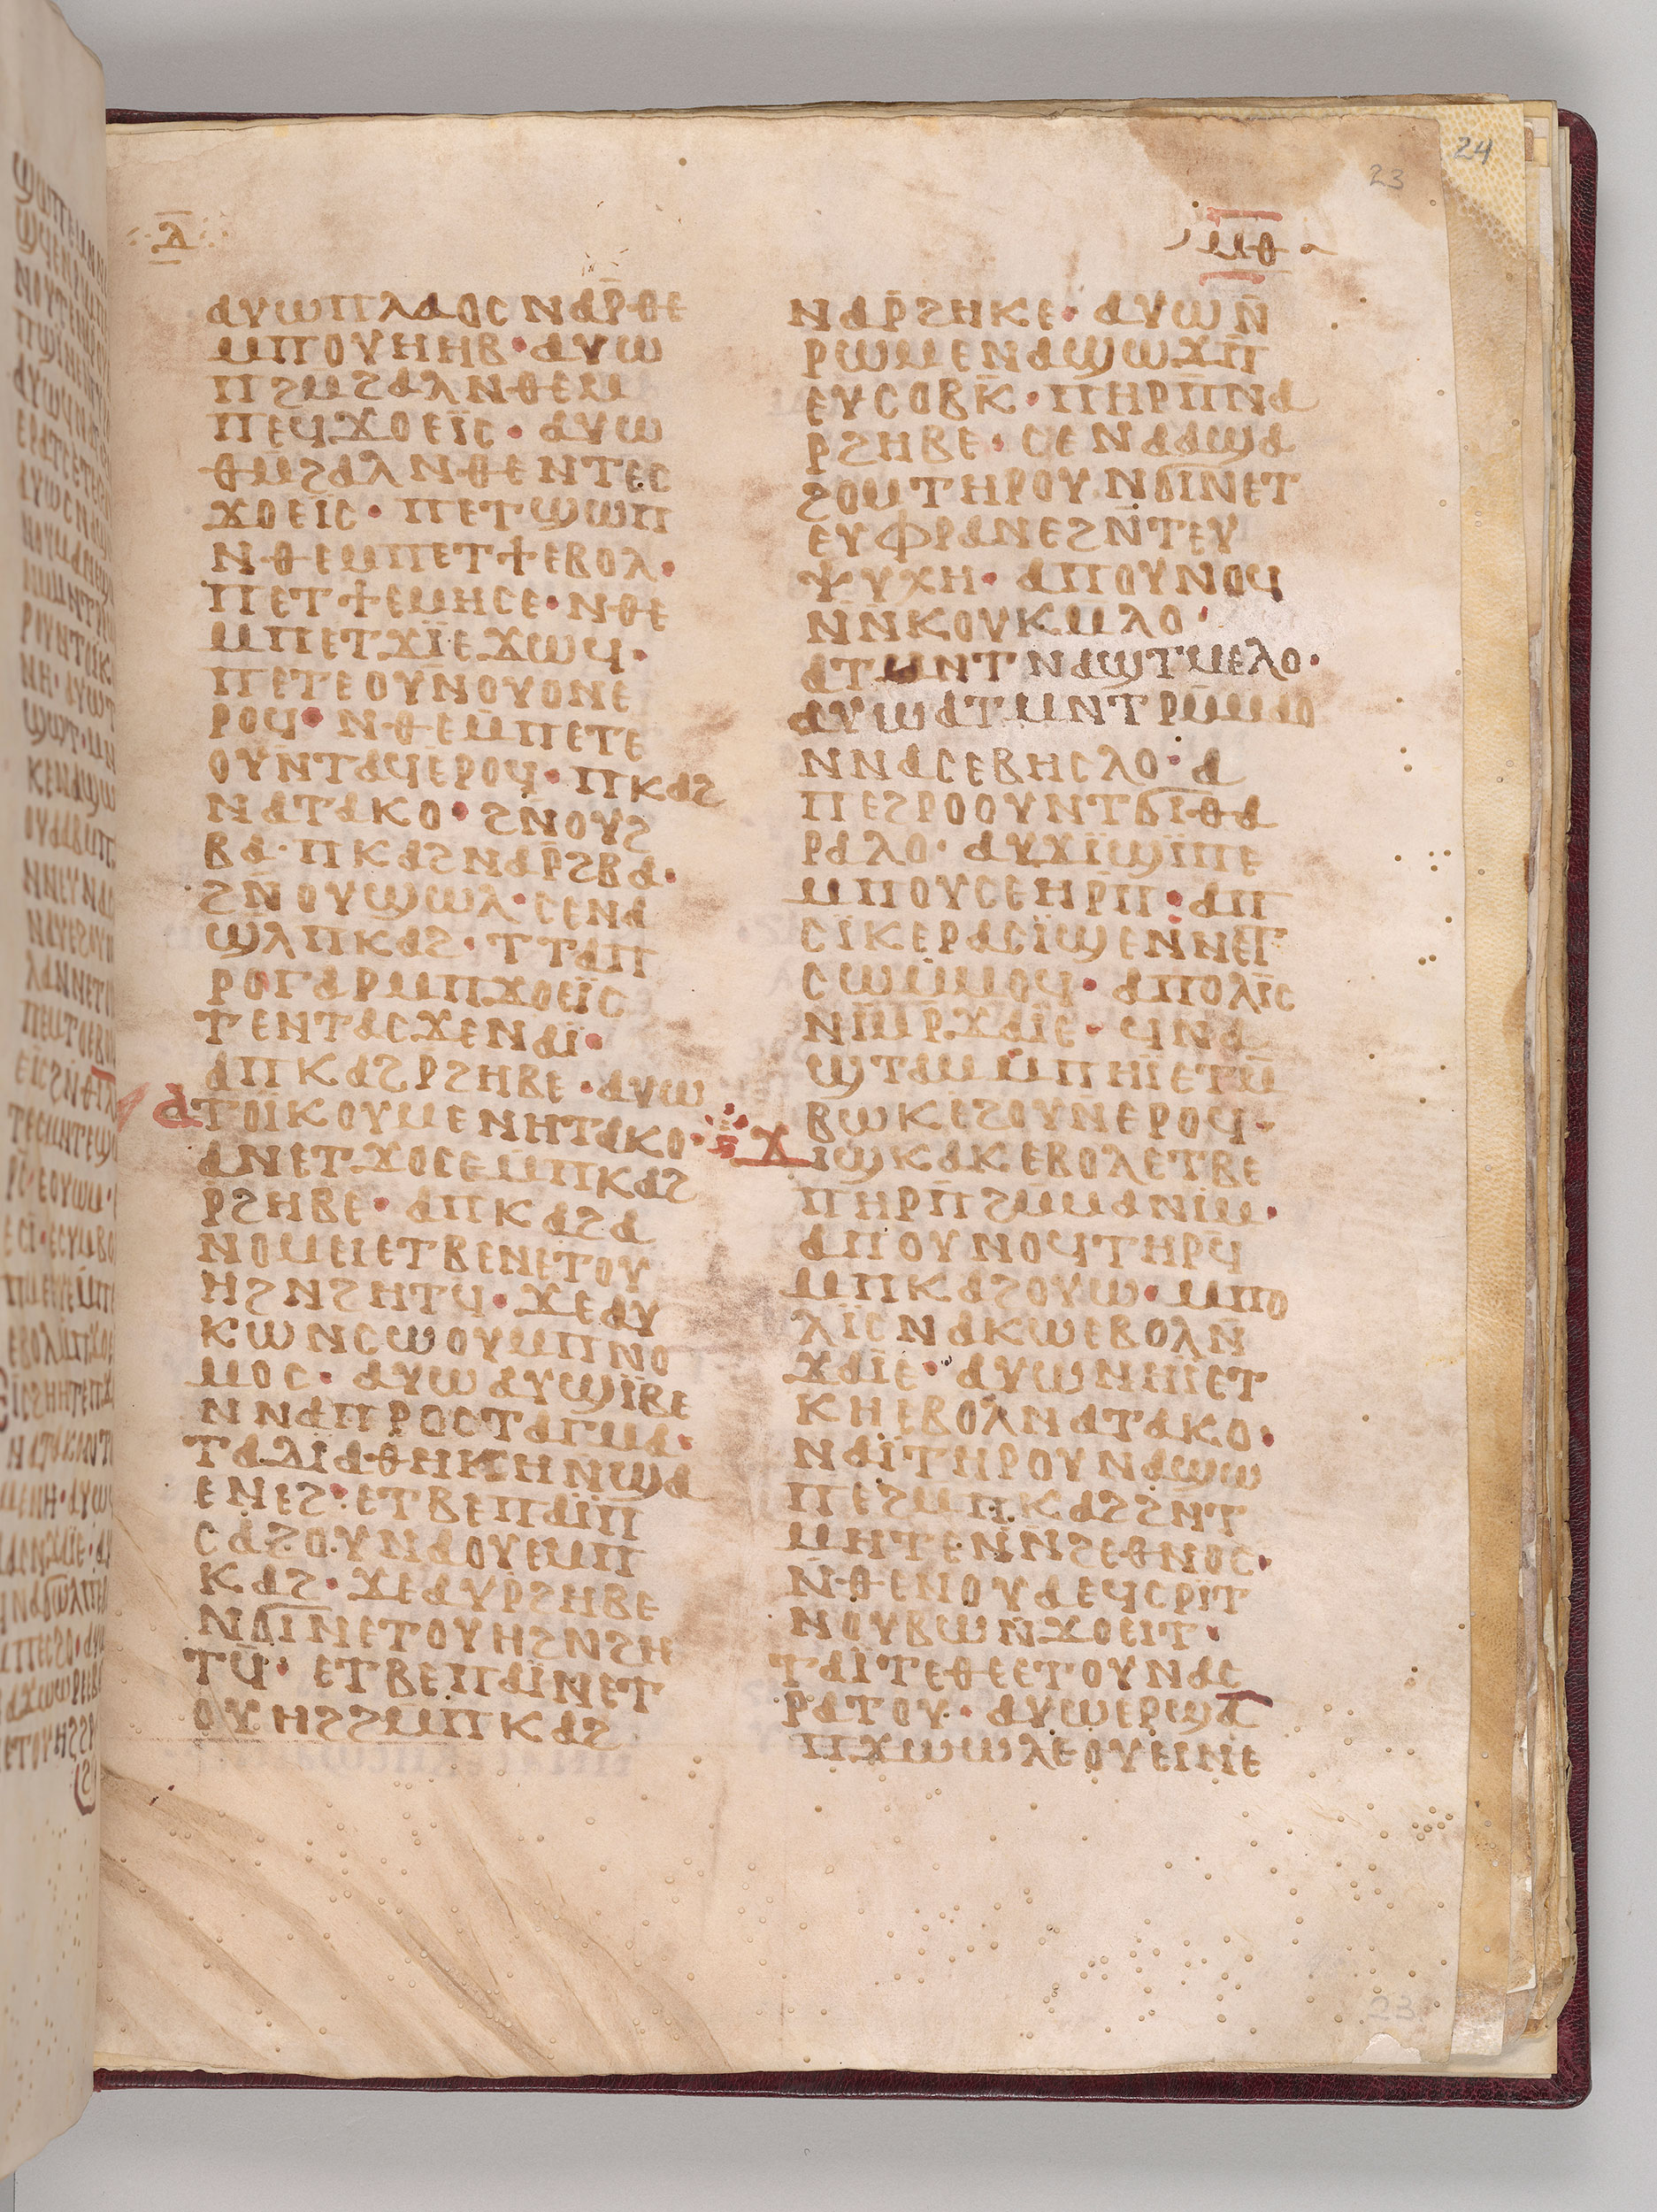 24
23
ⲗ
ⲙⲑ
ⲁⲩⲱⲡⲗⲁⲟⲥⲛⲁⲣ̄ⲑⲉ
ⲙⲡⲟⲩⲏⲏⲃ· ⲁⲩⲱ
ⲡϩⲙϩⲁⲗⲛⲑⲉⲙ
ⲡⲉϥϫⲟⲉⲓ̈ⲥ· ⲁⲩⲱ
ⲑⲙϩⲁⲗⲛⲑⲉⲛⲧⲉⲥ
ϫⲟⲉⲓ̈ⲥ· ⲡⲉⲧϣⲱⲡ
ⲛⲑⲉⲙⲡⲉⲧϯⲉⲃⲟⲗ·
ⲡⲉⲧϯⲉⲙⲏⲥⲉ· ⲛⲑⲉ
ⲙⲡⲉⲧϫⲓ̈ⲉϫⲱϥ·
ⲡⲉⲧⲉⲟⲩⲛⲟⲩⲟⲛⲉ
ⲣⲟϥ· ⲛⲑⲉⲙ̄ⲡⲉⲧⲉ
ⲟⲩⲛ̄ⲧⲁϥⲉⲣⲟϥ· ⲡⲕⲁϩ
ⲛⲁⲧⲁⲕⲟ· ϩⲛ̄ⲟⲩϩ
ⲃⲁ· ⲡⲕⲁϩⲛⲁⲣ̄ϩⲃⲁ·
ϩⲛ̄ⲟⲩϣⲱⲗ· ⲥⲉⲛⲁ
ϣⲗⲡⲕⲁϩ· ⲧⲧⲁⲡ
ⲣⲟⲅⲁⲣⲙⲡϫⲟⲉⲓ̈ⲥ
ⲧⲉⲛⲧⲁⲥϫⲉⲛⲁⲓ̈·
ⲁⲡⲕⲁϩⲣϩⲏⲃⲉ· ⲁⲩⲱ
ⲁⲧⲟⲓ̈ⲕⲟⲩⲙⲉⲛⲏⲧⲁⲕⲟ·
ⲁⲛⲉⲧϫⲟⲥⲉⲙ̄ⲡⲕⲁϩ
ⲣϩⲏⲃⲉ· ⲁⲡⲕⲁϩⲁ
ⲛⲟⲙⲉⲓⲉⲧⲃⲉⲛⲉⲧⲟⲩ
ⲏϩⲛϩⲏⲧϥ· ϫⲉⲁⲩ
ⲕⲱⲛⲥⲱⲟⲩⲙⲡⲛⲟ
ⲙⲟⲥ· ⲁⲩⲱⲁⲩϣⲓ̈ⲃⲉ
ⲛⲛⲁⲡⲣⲟⲥⲧⲁⲅⲙⲁ·
ⲧⲁⲗⲓⲁⲑⲏⲕⲏⲛϣⲁ
ⲉⲛⲉϩ· ⲉⲧⲃⲉⲡⲁⲓ̈ⲡ
ⲥⲁϩⲟⲩⲛⲁⲟⲩⲉⲙⲡ
ⲕⲁϩ· ϫⲉⲁⲩⲣϩⲏⲃⲉ
ⲛϭⲓⲛⲉⲧⲟⲩⲏϩⲛϩⲏ
ⲧϥ̄· ⲉⲧⲃⲉⲡⲁⲓ̈ⲛⲉⲧ
ⲟⲩⲏϩϩⲙⲡⲕⲁϩ
ⲛⲁⲣ̄ϩⲏⲕⲉ· ⲁⲩⲱⲛ̄
ⲣⲱⲙⲉⲛⲁϣⲱϫⲡ̄
ⲉⲩⲥⲟⲃⲕ̄· ⲡⲏⲣⲡ̄ⲛⲁ
ⲣϩⲏⲃⲉ· ⲥⲉⲛⲁⲁϣⲁ
ϩⲟⲙⲧⲏⲣⲟⲩⲛϭⲓⲛⲉⲧ
ⲉⲩⲫⲣⲁⲛⲉϩⲛ̄ⲧⲉⲩ
ⲯⲩⲭⲏ· ⲁⲡⲟⲩⲛⲟϥ
ⲛ̄ⲛ̄ⲕⲟⲩⲕⲙⲗⲟ·
ⲁⲧⲙⲛⲧⲛⲁϣⲧⲙⲉⲗⲟ·
ⲁⲩⲱⲁⲧⲙⲛⲧⲣⲙ̄ⲙⲁⲟ
ⲛⲛⲁⲥⲉⲃⲏⲥⲗⲟ· ⲁ
ⲡⲉϩⲣⲟⲟⲩⲛⲧϭⲓⲑⲁ
ⲣⲁⲗⲟ· ⲁⲩϫⲓ̈ϣⲓ̈ⲡⲉ
ⲙⲡⲟⲩⲥⲉⲏⲣⲡ̄· ⲁⲡ
ⲥⲓ̈ⲕⲉⲣⲁⲥⲓ̈ϣⲉⲛ̄ⲛⲉⲧ
ⲥⲱⲙ̄ⲙⲟϥ· ⲁⲡⲟⲗⲓ̈ⲥ
ⲛⲓ̈ⲙⲣϫⲁⲓ̈ⲉ· ϥⲛⲁ
ϣⲧⲁⲙⲙ̄ⲡⲏⲓ̈ⲉⲧⲙ̄
ⲃⲱⲕⲉϩⲟⲩⲛⲉⲣⲟϥ·
ϫⲓϣⲕⲁⲕⲉⲃⲟⲗⲉⲧⲃⲉ
ⲡⲏⲣⲡ̄ϩⲙ̄ⲙⲁⲛⲓ̈ⲙ·
ⲁⲡⲟⲩⲛⲟϥⲧⲏⲣϥ̄
ⲙⲡⲕⲁϩⲟⲩⲱ· ⲙⲡⲟ
ⲗⲓ̈ⲥⲛⲁⲕⲱⲉⲃⲟⲗⲛ̄
ϫⲁⲓ̈ⲉ· ⲁⲩⲱⲛⲏⲓ̈ⲉⲧ
ⲕⲏⲉⲃⲟⲗⲛⲁⲧⲁⲕⲟ·
ⲛⲁⲓ̈ⲧⲏⲣⲟⲩⲛⲁϣⲱ
ⲡⲉϩⲙⲡⲕⲁϩϩⲛⲧ
ⲙⲏⲧⲉⲛ̄ⲛ̄ϩⲉⲑⲛⲟⲥ·
ⲛ̄ⲑⲉⲛⲟⲩⲁⲉϥⲥⲣⲓ̈ⲧ
ⲛⲟⲩⲃⲱⲛ̄ϫⲟⲉⲓⲧ·
ⲧⲁⲓ̈ⲧⲉⲑⲉⲉⲧⲟⲩⲛⲁⲥ
ⲣⲁⲧⲟⲩ· ⲁⲩⲱⲉⲣϣⲁ
ⲡϫⲱⲱⲗⲉⲟⲩⲉⲓⲛⲉ
23